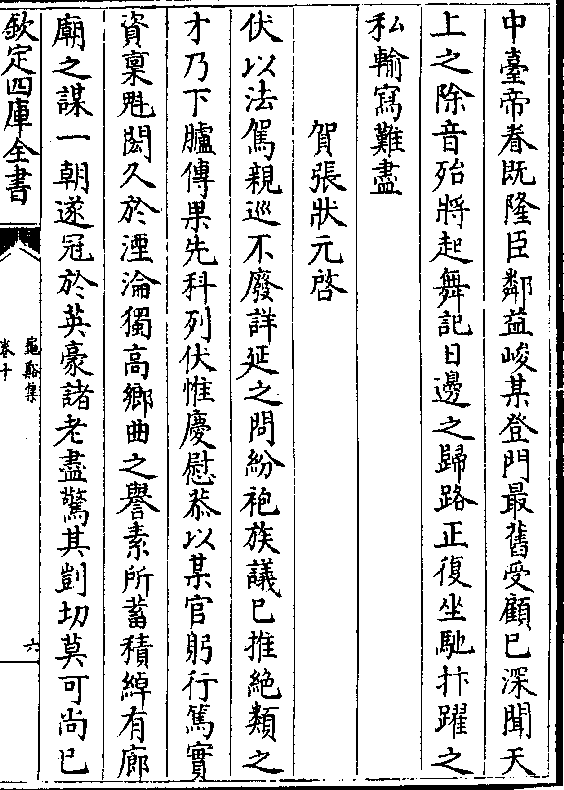 中臺帝眷既隆臣鄰益峻某登門最舊受顧已深聞天
上之除音殆將起舞記日邊之歸路正復坐馳抃躍之
私輸寫難盡
賀張狀元啓
伏以法駕親巡不廢詳延之問紛袍族議已推絶類之
才乃下臚傳果先科列伏惟慶慰恭以某官躬行篤實
資稟魁閎久於湮淪獨高鄉曲之譽素所蓄積綽有廊
廟之謀一朝遂冠於英豪諸老盡驚其剴切莫可尚已
欽定四庫全書
龜谿集
卷十
六